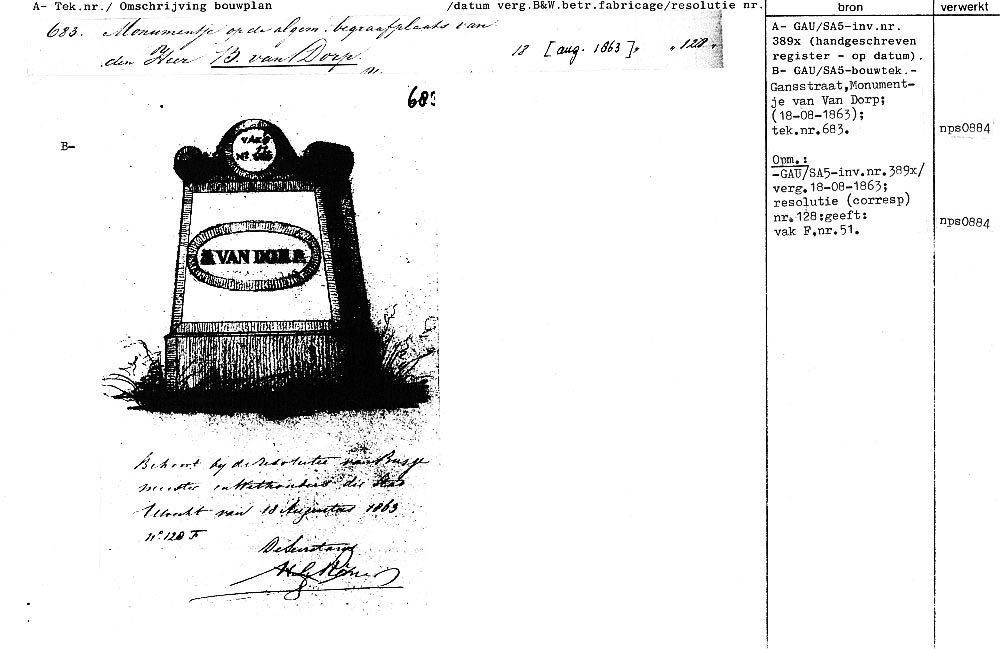 A- Tek.nr./ Omschrijving bouwplan /datum verg.B&W.betr.fabricage/resolutie nr.
bron
verwerkt
683. Monumentje op de algem. begraafplaats van
den Heer B. van Dorp.
18 [aug. 1863] " " 128 "
683
B-
VAK
N°.
B VAN DORP
Behoort bij de resolutie van Burge
meester en Wethouders der Stad
Utrecht van 18 Augustus 1863
n° 128 F
De Secretaris
A- GAU/SA5-inv.nr.
389x (handgeschreven
register - op datum).
B- GAU/SA5-bouwtek.-
Gansstraat,Monument-
je van Van Dorp;
(18-08-1863);
tek.nr.683.
nps0884
Opm.:
-GAU/SA5-inv.nr.389x/
verg.18-08-1863;
resolutie (corresp)
nr.128:geeft:
vak F,nr.51.
nps0884